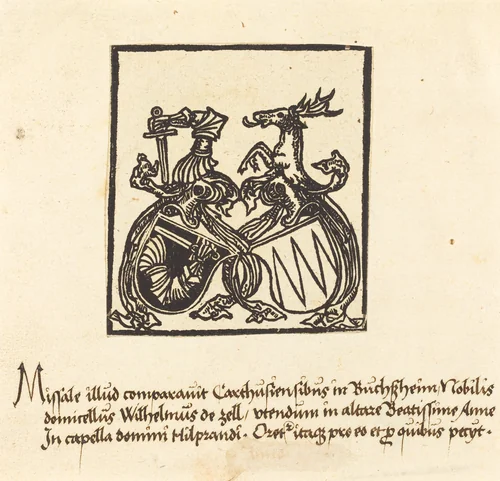 Missale illud comparavit Carthusiensibus in Buchßheim / Nobilis
domicellus Wilhelmus de Zell / utendum in altare Beatissime Anne
In capella domini Hilprandi · Oretr itaq pro eo et p quibus petyt ·